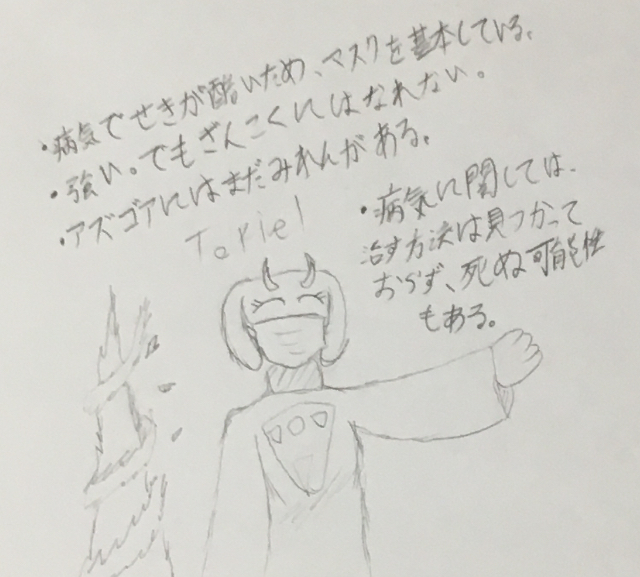 ・病気でせきが酷いため、マスクを基本している。
・強い。でもざんこくにはなれない。
・アズゴアにはまだみれんがある。
Toriel
・病気に関しては、
治す方法は見つかって
おらず、死ぬ可能性
もある。